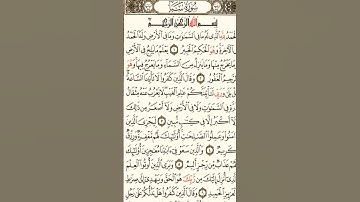 سُورَةُ سَبَإٍ
بِسْمِ ٱللَّهِ ٱلرَّحْمَٰنِ ٱلرَّحِيمِ
ٱلْحَمْدُ لِلَّهِ ٱلَّذِى لَهُۥ مَا فِى ٱلسَّمَٰوَٰتِ وَمَا فِى ٱلْأَرْضِ وَلَهُ ٱلْحَمْدُ
ٱلْأَخِرَةِ وَهُوَ ٱلْحَكِيمُ ٱلْخَبِيرُ ۝ يَعْلَمُ مَا يَلِجُ فِى ٱلْأَرْضِ
وَمَا يَخْرُجُ مِنْهَا وَمَا يَنزِلُ مِنَ ٱلسَّمَآءِ وَمَا يَعْرُجُ فِيهَا وَهُوَ
ٱلرَّحِيمُ ٱلْغَفُورُ ۝ وَقَالَ ٱلَّذِينَ كَفَرُوا۟ لَا تَأْتِينَا ٱلسَّاعَةُ
بَلَىٰ وَرَبِّى لَتَأْتِيَنَّكُمْ عَٰلِمِ ٱلْغَيْبِ لَا يَعْزُبُ عَنْهُ مِثْقَالُ
ذَرَّةٍ فِى ٱلسَّمَٰوَٰتِ وَلَا فِى ٱلْأَرْضِ وَلَآ أَصْغَرُ مِن
وَلَآ أَكْبَرُ إِلَّا فِى كِتَٰبٍ مُّبِينٍ ۝ لِّيَجْزِىَ ٱلَّذِينَ
ءَامَنُوا۟ وَعَمِلُوا۟ ٱلصَّٰلِحَٰتِ أُو۟لَٰٓئِكَ لَهُم مَّغْفِرَةٌ وَرِزْقٌ
كَرِيمٌ ۝ وَٱلَّذِينَ سَعَوْ فِىٓ ءَايَٰتِنَا مُعَٰجِزِينَ أُو۟لَٰٓئِكَ
لَهُمْ عَذَابٌ مِّن رِّجْزٍ أَلِيمٌ ۝ وَيَرَى ٱلَّذِينَ أُوتُوا۟ ٱلْعِلْمَ
ٱلَّذِىٓ أُنزِلَ إِلَيْكَ مِن رَّبِّكَ هُوَ ٱلْحَقَّ وَيَهْدِىٓ إِلَىٰ صِرَٰطِ
ٱلْعَزِيزِ ٱلْحَمِيدِ ۝ وَقَالَ ٱلَّذِينَ كَفَرُوا۟ هَلْ نَدُلُّكُمْ عَلَىٰ رَجُلٍ